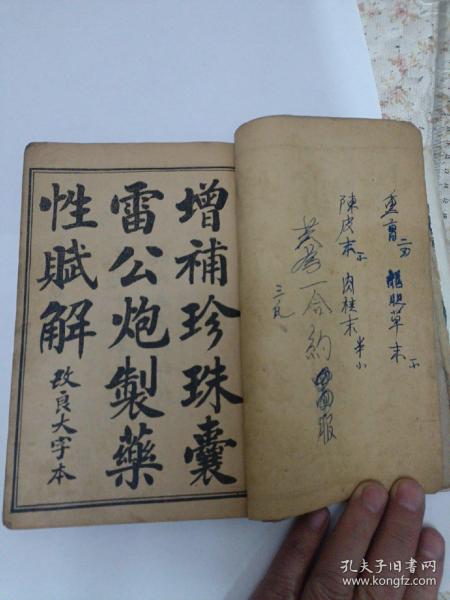 增補珍珠囊
雷公炮製藥
性賦解
改良大字本
龍胆草末
陳皮末 肉桂末 半小
一合約
服
三瓦
孔夫子旧书网
www.kongfz.com